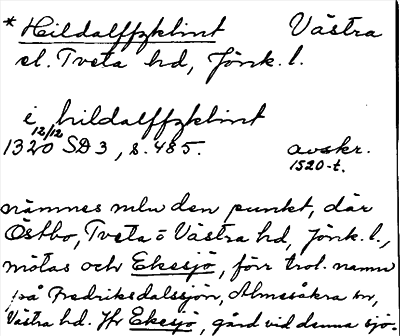 * Hildalffzklint Västra
el. Tveta hd, Jönk. l.
i hildalffzklint
12/12
1320 SD 3, s. 485. avskr.
1520-t.
nämnes mlu den punkt, där
Östbo, Tveta o Västra hd, Jönk. l.,
mötas och Ekesjö, förr trol. namn
på Fredriksdalssjön, Almesåkra sn,
Västra hd. Jfr Ekesjö, gård vid denna sjö.